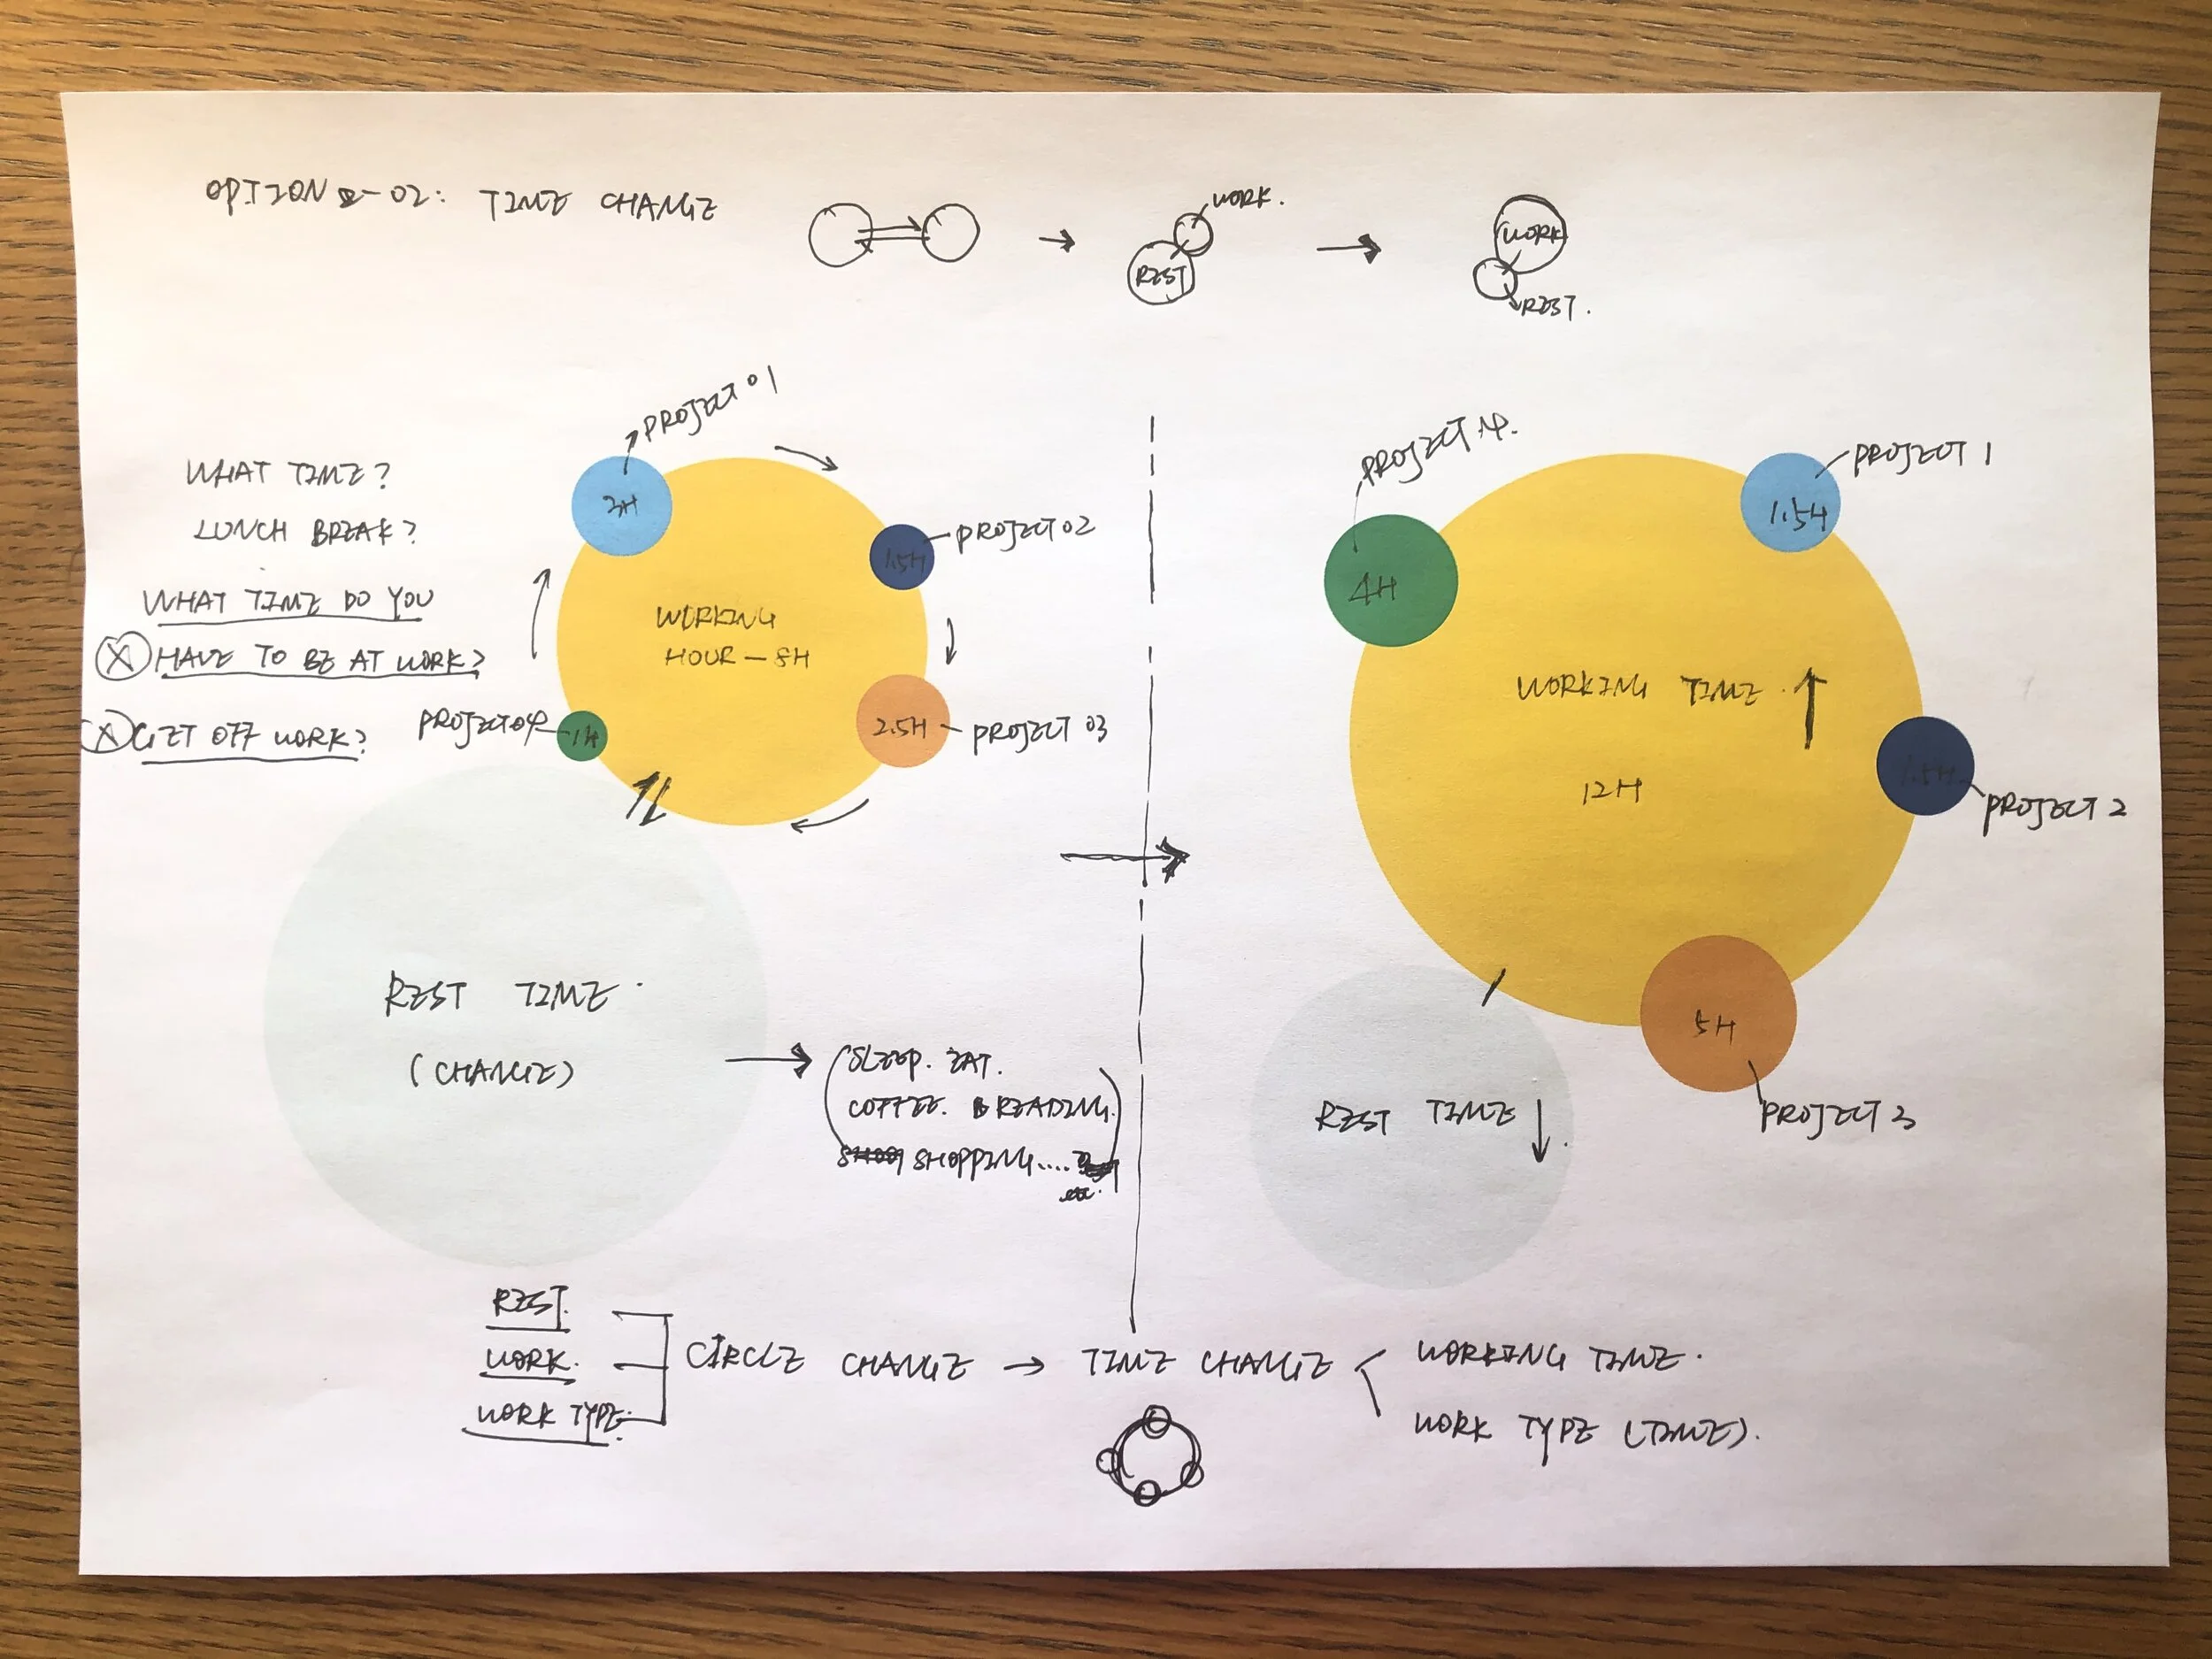 OPTION 2-02: TIME CHANGE
WORK.
REST
WORK
REST.
WHAT TIME?
LUNCH BREAK?
WHAT TIME DO YOU
HAVE TO BE AT WORK?
GET OFF WORK?
PROJECT 01
PROJECT 02
1.5H
WORKING
HOUR — 8H
2.5H
PROJECT 03
PROJECT 04
1H
REST TIME.
(CHANGE)
(SLEEP. EAT.
COFFEE. READING.)
SHOPPING....
etc.
PROJECT 4.
4H
PROJECT 1
1.5H
WORKING TIME.
12H
1.5H
PROJECT 2
5H
PROJECT 3
REST TIME
REST.
WORK.
WORK TYPE.
CIRCLE CHANGE → TIME CHANGE
WORKING TIME.
WORK TYPE (TIME).